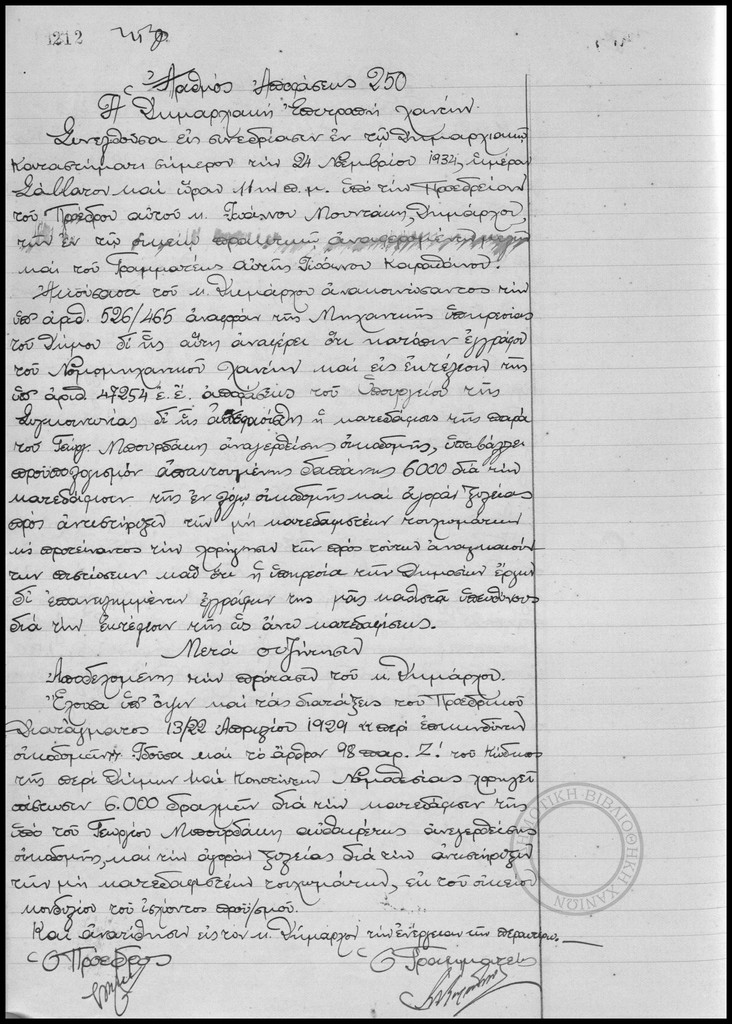 1212
Ἀριθμός Ἀποφάσεως 250
Ἡ Δημαρχιακή Ἐπιτροπή Χανίων.
Συνελθοῦσα εἰς συνεδρίασιν ἐν τῷ Δημαρχιακῷ
Καταστήματι σήμερον τήν 24 Νοεμβρίου 1934, ἡμέραν
Σάββατον καί ὥραν 11ην π.μ. ὑπό τήν Προεδρείαν
τοῦ Προέδρου αὐτοῦ κ. Ἰωάννου Μουντάκη, Δημάρχου,
καί τοῦ Γραμματέως αὐτῆς Ἰωάννου
Ἀκούσασα τοῦ κ. Δημάρχου ἀνακοινώσαντος τήν
ὑπ' ἀριθ. 526/465 ἀναφοράν τῆς Μηχανικῆς ὑπηρεσίας
τοῦ Δήμου δι' ἧς αὕτη ἀναφέρει ὅτι κατόπιν ἐγγράφου
τοῦ Νομομηχανικοῦ Χανίων καί εἰς ἐκτέλεσιν τῆς
ὑπ' ἀριθ 47254 ἐ.ἔ. ἀποφάσεως τοῦ Ὑπουργείου τῆς
Συγκοινωνίας δι' ἧς ἀπεφασίσθη ἡ κατεδάφισις τῆς παρά
τοῦ Γεωργ. Μπουρδάκη ἀνεγερθείσης οἰκοδομῆς, ὑποβάλλει
προϋπολογισμόν ἀπαιτουμένης δαπάνης 6000 διά τήν
κατεδάφισιν τῆς ἐν λόγῳ οἰκοδομῆς καί ἀγοράν ξυλείας
πρός ἀντιστήριξιν τῶν μή κατεδαφιστέων τοιχωμάτων
κ' προτείναντος τήν χορήγησιν τῶν πρός τοῦτον ἀναγκαιού-
των πιστώσεων καθ' ὅτι ἡ ὑπηρεσία τῶν Δημοσίων ἔργων
δι' ἐπανειλημμένων ἐγγράφων της μᾶς καθιστᾶ ὑπευθύνους
διά τήν ἐκτέλεσιν τῆς ὡς ἄνω κατεδαφίσεως.
Μετά συζήτησιν
Ἀποδεχομένη τήν πρότασιν τοῦ κ. Δημάρχου.
Ἔχουσα ὑπ' ὄψιν καί τάς διατάξεις τοῦ Προεδρικοῦ
Διατάγματος 13/22 Ἀπριλίου 1929 "περί ἐπικινδύνων
οἰκοδομῶν" Ἰδοῦσα καί τό ἄρθρον 98 παρ. Ζ! τοῦ Κώδικος
τῆς περί Δήμων καί Κοινοτήτων Νομοθεσίας χορηγεῖ
πίστωσιν 6.000 δραχμῶν διά τήν κατεδάφισιν τῆς
ὑπό τοῦ Γεωργίου Μπουρδάκη αὐθαιρέτως ἀνεγερθείσης
οἰκοδομῆς, καί τήν ἀγοράν ξυλείας διά τήν ἀντιστήριξιν
τῶν μή κατεδαφιστέων τοιχωμάτων, ἐκ τοῦ οἰκείου
κονδυλίου τοῦ ἰσχύοντος προϋ/σμοῦ.
Καί ἀνατίθησιν εἰς τόν κ. Δήμαρχον τήν ἐνέργειαν τῶν περαιτέρω.
Ὁ Πρόεδρος Ὁ Γραμματεύς
ΔΗΜΟΤΙΚΗ ΒΙΒΛΙΟΘΗΚΗ ΧΑΝΙΩΝ